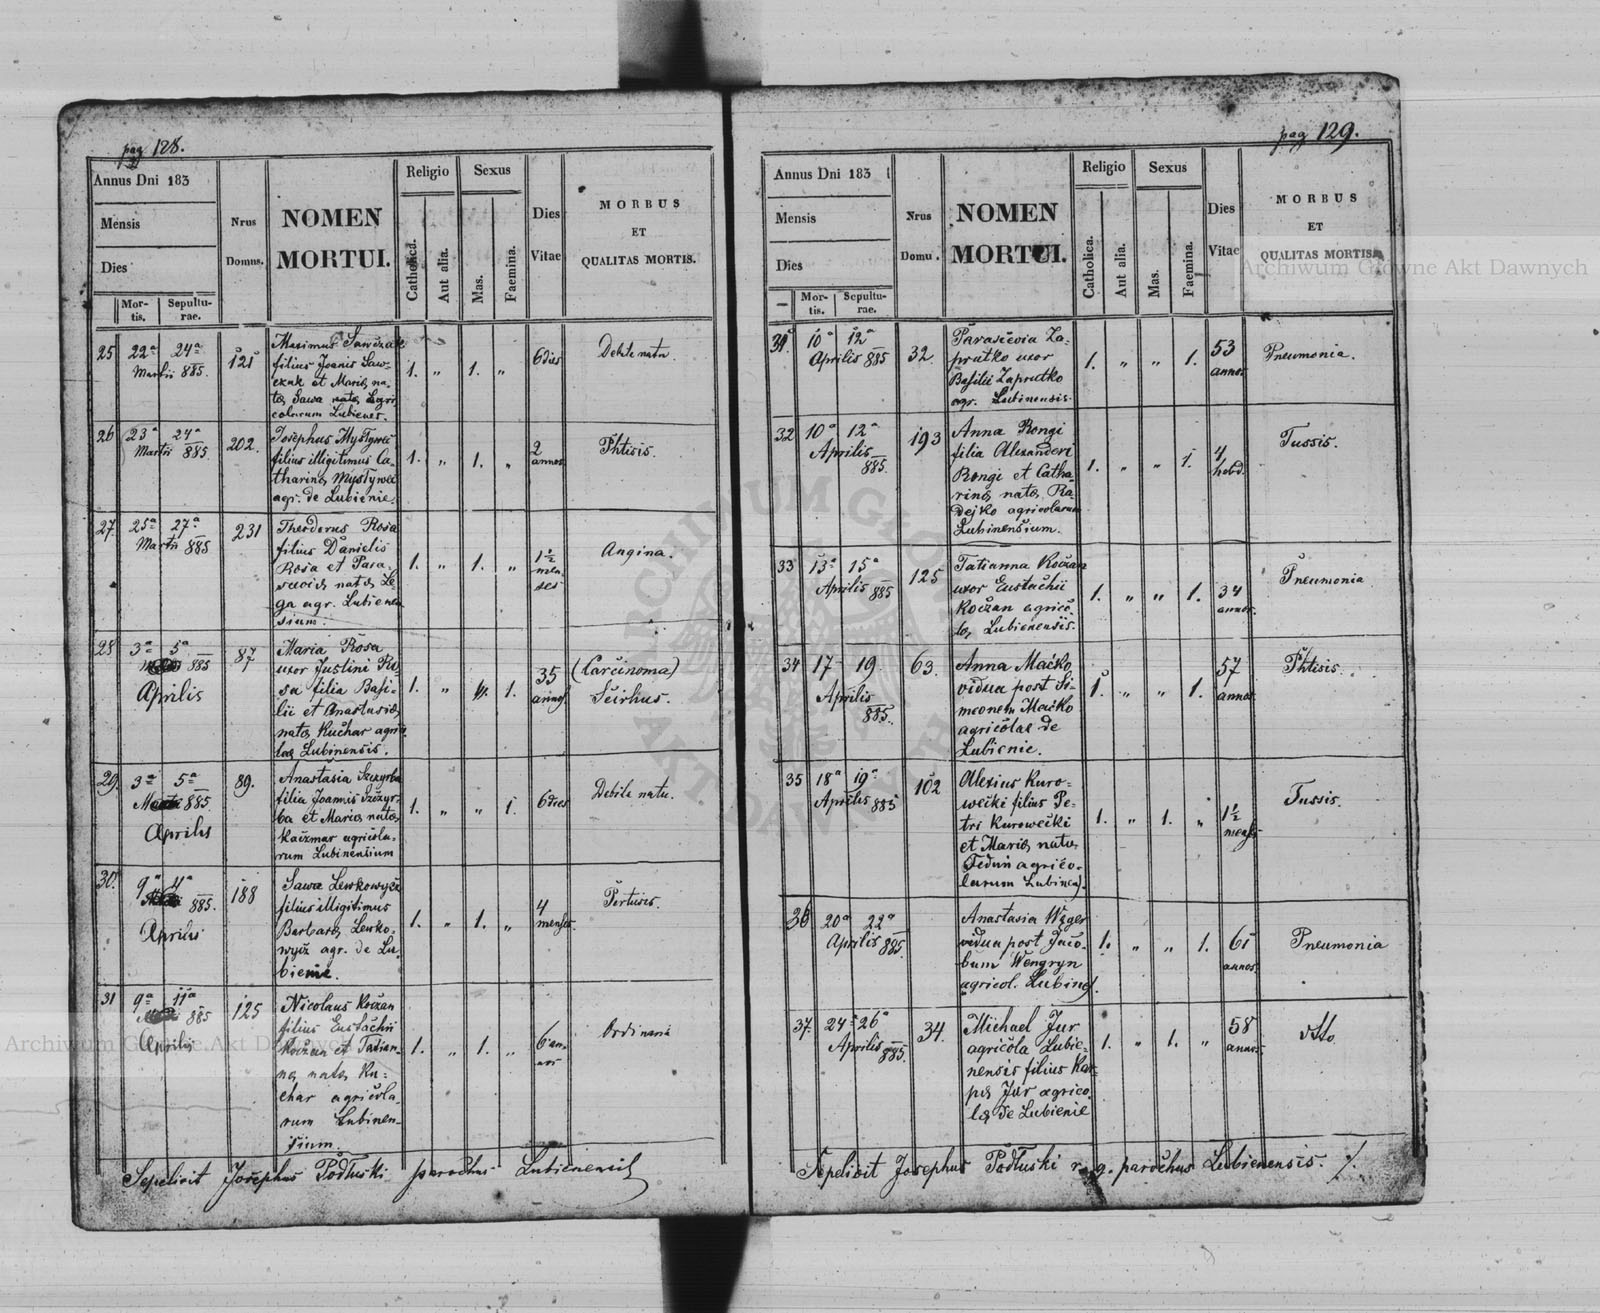 pag 128.
Annus Dni 183
Mensis
Dies
Mor-
tis.
Sepultu-
rae.
Nrus
Domus.
NOMEN
MORTUI.
Religio
Catholica.
Aut alia.
Sexus
Mas.
Faemina.
Dies
Vitae
MORBUS
ET
QUALITAS MORTIS.
25 22a 24a
Martii 885.
121
Maximus Sawczak
filius Joanis Saw-
czak et Maria na-
ta Sawa nata agri
colarum Lubienes.
1. „ 1. „
6 dies
Debile natu
26 23a 24a
Martii 885.
202.
Josephus Mystywec
filius illigitimus Ca-
tharina Mystywec
agr. de Lubienie.
1. „ 1. „
2
annos
Phtisis.
27. 25a 27a
Martii 885
231
Theodorus Rosa
filius Danielis
Rosa et Para-
scevia nata Le
ga agr. Lubienen
sium.
1. „ 1. „
1½
men-
ses
Angina.
28 3a 5a
885
Aprilis
87
Maria Rosa
uxor Justini Ro
sa filia Basi-
lii et Anastasia
nata Kuchar agri
lae Lubinensis.
1. „ 1.
35
annos.
(Carcinoma)
Scirhus.
29. 3a 5a
885.
Aprilis
89.
Anastasia Szczyrba
filia Joannis Szczyr-
ba et Maria nata
Kaczmar agricola-
rum Lubinensium
1. „ „ 1.
6 dies
Debile natu.
30. 9a 11a
885.
Aprilis
188
Sawa Lewkowycz
filius illigitimus
Barbara Lewko-
wycz agr. de Lu-
bienie.
1. „ 1. „
4
menses.
Pertusis.
31 9a 11a
885
Aprilis
125
Nicolaus Koczan
filius Eustachii
Koczan et Tatian-
na nata Ku-
char agricola-
rum Lubinen-
sium.
1. „ 1. „
6 an-
nos
Ordinaria
Sepelivit Josephus Podłuski parochus Lubienensis
pag 129.
Annus Dni 183
Mensis
Dies
Mor-
tis.
Sepultu-
rae.
Nrus
Domu .
NOMEN
MORTUI.
Religio
Catholica.
Aut alia.
Sexus
Mas.
Faemina.
Dies
Vitae
MORBUS
ET
QUALITAS MORTIS.
31. 10a 12a
Aprilis 885
32.
Parascevia Za-
prutko uxor
Basilii Zaprutko
agr. Lubinensis.
1. „ „ 1.
53
annos.
Pneumonia.
32 10a 12a
Aprilis
885.
193
Anna Rongi
filia Alexanderi
Rongi et Catha-
rina nata Ra-
dejko agricolarum
Lubinensium.
1. „ „ 1.
4
hebd.
Tussis.
33 13a 15a
Aprilis 885
125
Tatianna Koczan
uxor Eustachii
Koczan agrico-
la Lubienensis.
1. „ „ 1.
34
annos.
Pneumonia
34 17 19
Aprilis
885.
63.
Anna Maćko
vidua post Si-
meonem Maćko
agricolae de
Lubienie.
1. „ „ 1.
57
annos.
Phtisis.
35 18a 19a
Aprilis 885
102
Alexius Kuro-
wecki filius Pe-
tri Kurowecki
et Maria nata
Fedun agrico-
larum Lubines.
1. „ 1. „
1½
menses.
Tussis.
36 20a 22a
Aprilis 885.
Anastasia Wzger
vidua post Jaco-
bum Wengryn
agricol. Lubines.
1. „ „ 1.
65
annos.
Pneumonia
37. 24a 26a
Aprilis 885.
34.
Michael Jur
agricola Lubie-
nensis filius Kar-
pa Jur agrico-
la de Lubienie
1. „ 1. „
58
annos.
dtto
Sepelivit Josephus Podłuski r. g. parochus Lubienensis.
Archiwum Główne Akt Dawnych
Archiwum Główne Akt Dawnych
ARCHIWUM GŁÓWNE AKT DAWNYCH